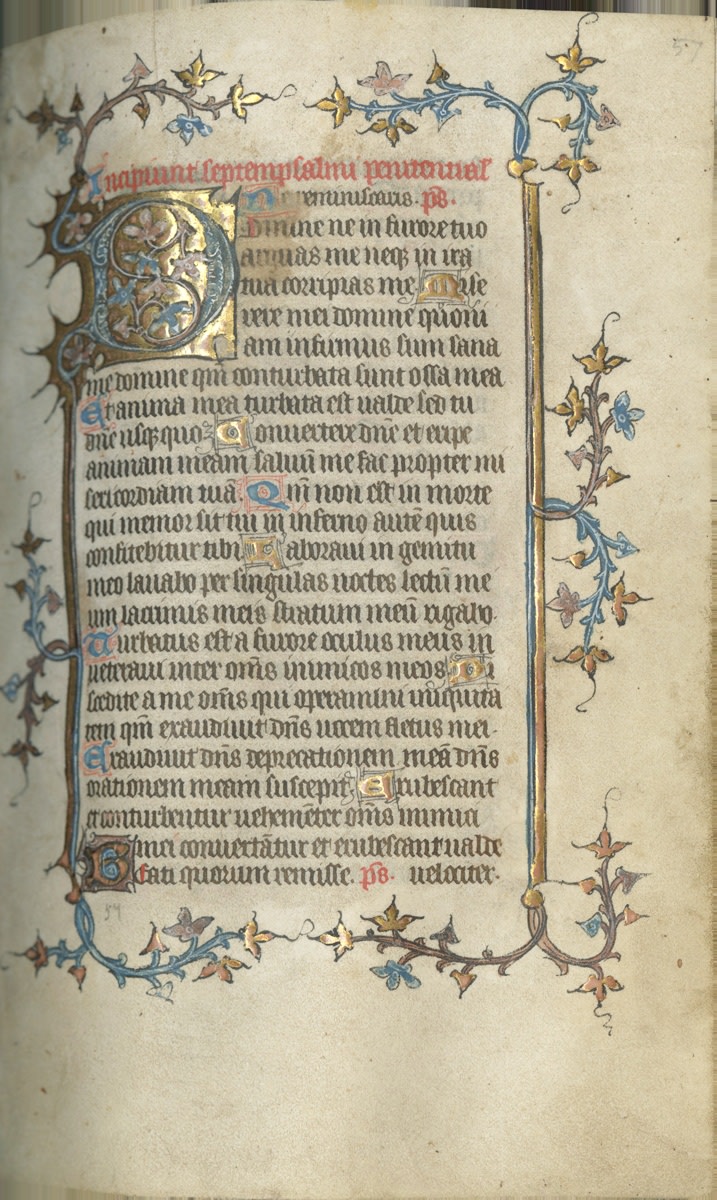 57
Incipiunt septem psalmi penitenciales
Ne reminiscaris. ps.
Domine ne in furore tuo
arguas me neqꝫ in ira
tua corripias me. Mise
rere mei domine quoni
am infirmus sum sana
me domine qm̄ conturbata sunt ossa mea
Et anima mea turbata est ualde sed tu
dn̄e usqꝫ quo Conuertere dn̄e et eripe
animam meam saluū me fac propter mi
sericordiam tuā. Qm̄ non est in morte
qui memor sit tui in inferno autē quis
confitebitur tibi Laboraui in gemitu
meo lauabo per singulas noctes lectū me
um lacrimis meis stratum meū rigabo.
Turbatus est a furore oculus meus in
ueteraui inter om̄s inimicos meos Di
scedite a me om̄s qui operamini iniquita
tem qm̄ exaudiuit dn̄s uocem fletus mei.
Exaudiuit dn̄s deprecationem meā dn̄s
orationem meam suscepit Erubescant
et conturbentur uehemēter om̄s inimici
mei conuertātur et erubescant ualde
Beati quorum remisse. ps. uelociter.